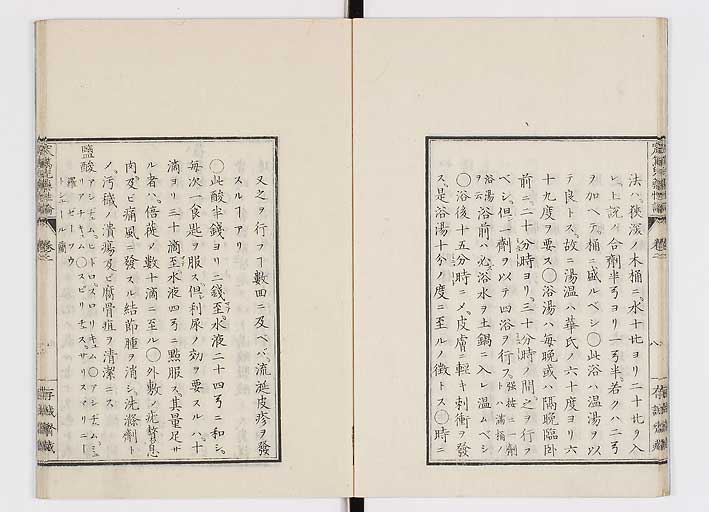 法ハ狹淺ノ木桶ニ水十比ヨリ二十比ヲ入
レ上説ノ合劑半弓ヨリ一弓半若クハ二弓
ヲ加ヘテ桶ニ盛ルベシ〇此浴ハ温湯ヲ以
テ良トス故ニ湯温ハ華氏ノ六十度ヨリ六
十九度ヲ要ス〇浴湯ハ每晚或ハ隔晚臨卧
前ニ二十分時ヨリ三十分時ノ間之ヲ行フ
ベシ但一劑ヲ以テ四浴ヲ行フ
浴湯ヲ云
浴前ハ必浴水ヲ土鍋ニ入レ温ムベシ
〇浴後十五分時ニメ皮膚ニ輕キ刺衝ヲ發
ス是浴湯十分ノ度ニ至ルノ徴トス〇時ニ
又之ヲ行フ丁數四ニ及ベバ流延皮疹ヲ發
スル丁アリ
〇此酸半錢ヨリ二錢至水液二十四弓ニ和シ
每次一食匙ヲ服ス但利尿ノ効ヲ要スルハ十
滴ヨリ三十滴至水液四弓ニ點服ス其量足サ
ル者ハ倍蓰メ數十滴ニ至ル〇外敷ノ疣贅息
肉及ビ痛風ニ發スル結節腫ヲ消シ洗滌劑ト
メ汚穢ノ潰瘍及ビ腐骨疽ヲ清潔ニス
鹽酸